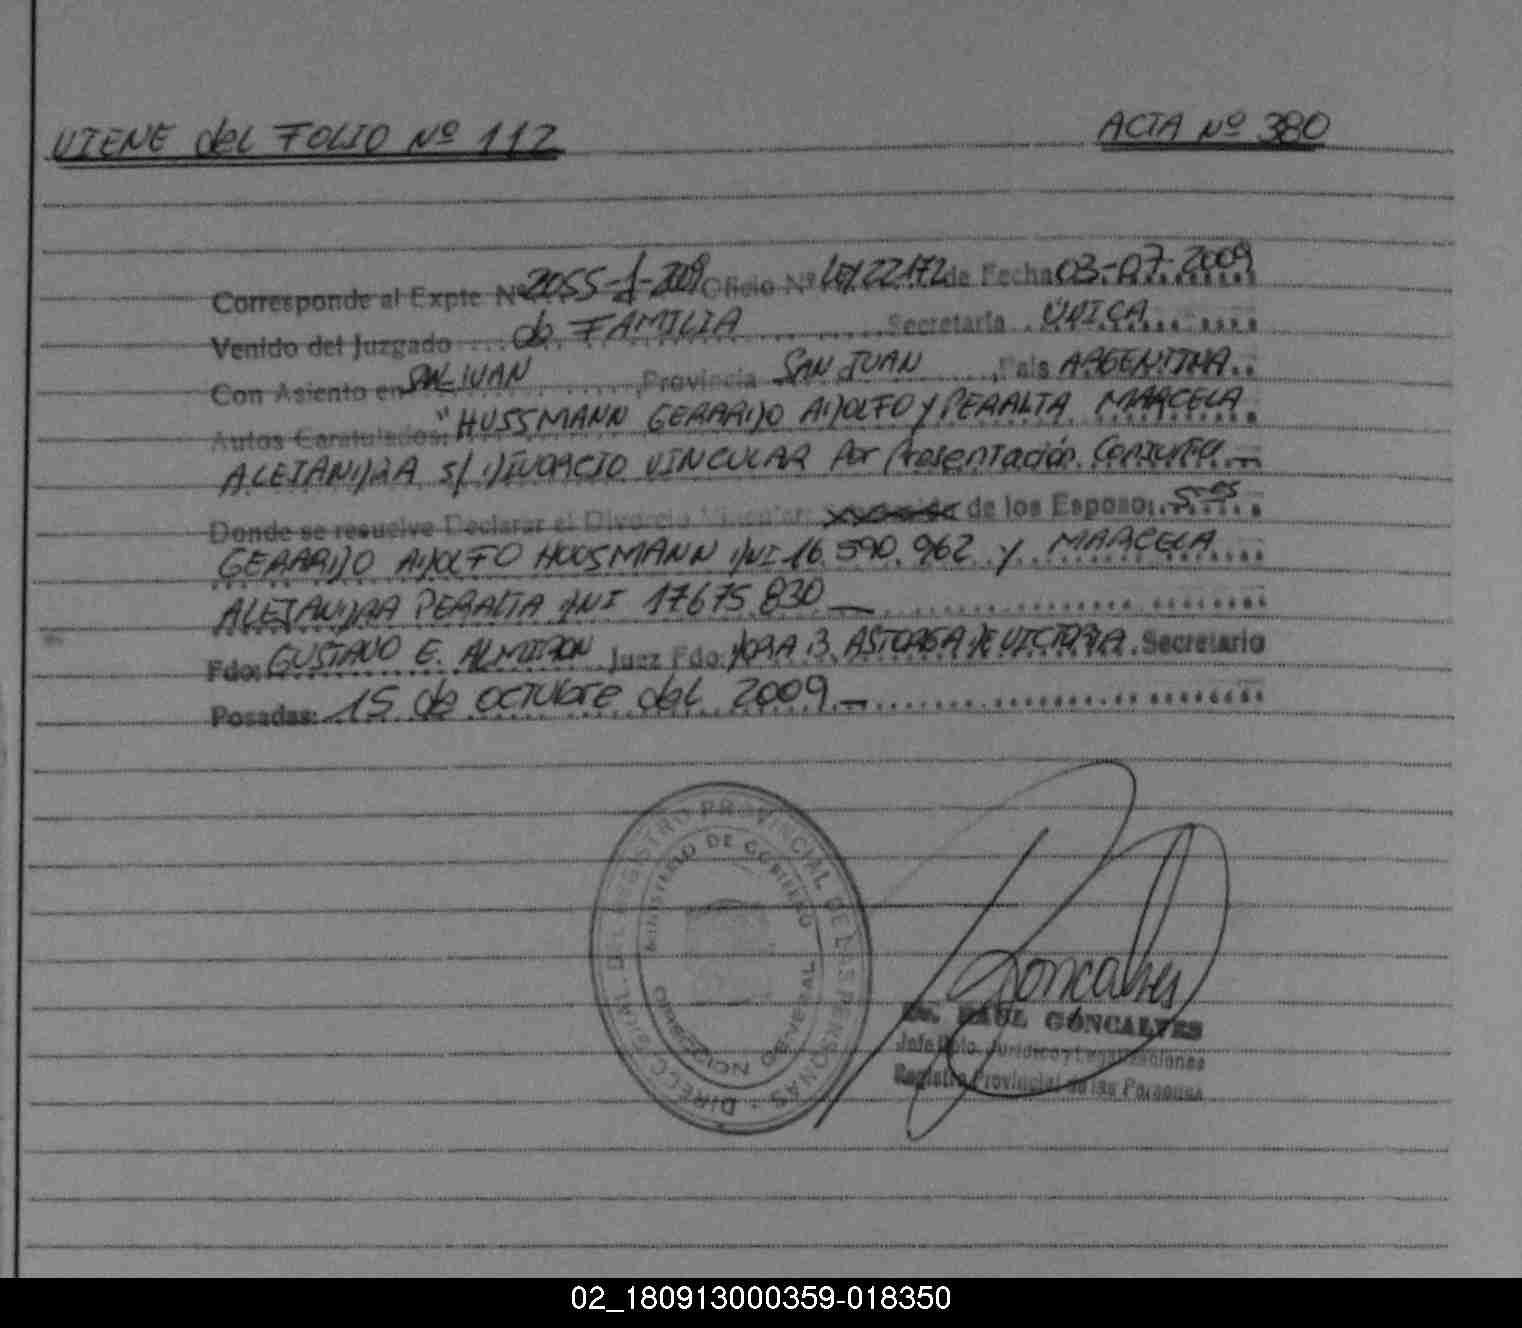 VIENE del FOLIO Nº 112
ACTA Nº 380
Corresponde al Expte Nº 2055-1-2009 Oficio Nº de Fecha 03-07-2009
Venido del Juzgado de FAMILIA Secretaria UNICA
Con Asiento en SAN JUAN, Provincia SAN JUAN, Pais ARGENTINA
Autos Caratulados: "HUSSMANN GERARDO ADOLFO y PERALTA MARCELA
ALEJANDRA s/ DIVORCIO VINCULAR Por Presentación Conjunta
Donde se resuelve Declarar el Divorcio Vincular: de los Esposo: S-es
GERARDO ADOLFO HUUSMANN DNI 16 590.962 y MARCELA
ALEJANDRA PERALTA DNI 17675 830
Fdo: GUSTAVO E. ALMIRON Juez Fdo: DORA B. ASTORGA DE VICTORIA. Secretario
Posadas: 15 de octubre del 2009
DIRECC. GRAL. DEL REGISTRO PROVINCIAL DE LAS PERSONAS
MINISTERIO DE GOBIERNO
DIRECCION GENERAL
Goncalves
Dr. RAUL GONCALVES
Jefe Dpto. Jurídico y Legalizaciones
Registro Provincial de las Personas
02_180913000359-018350